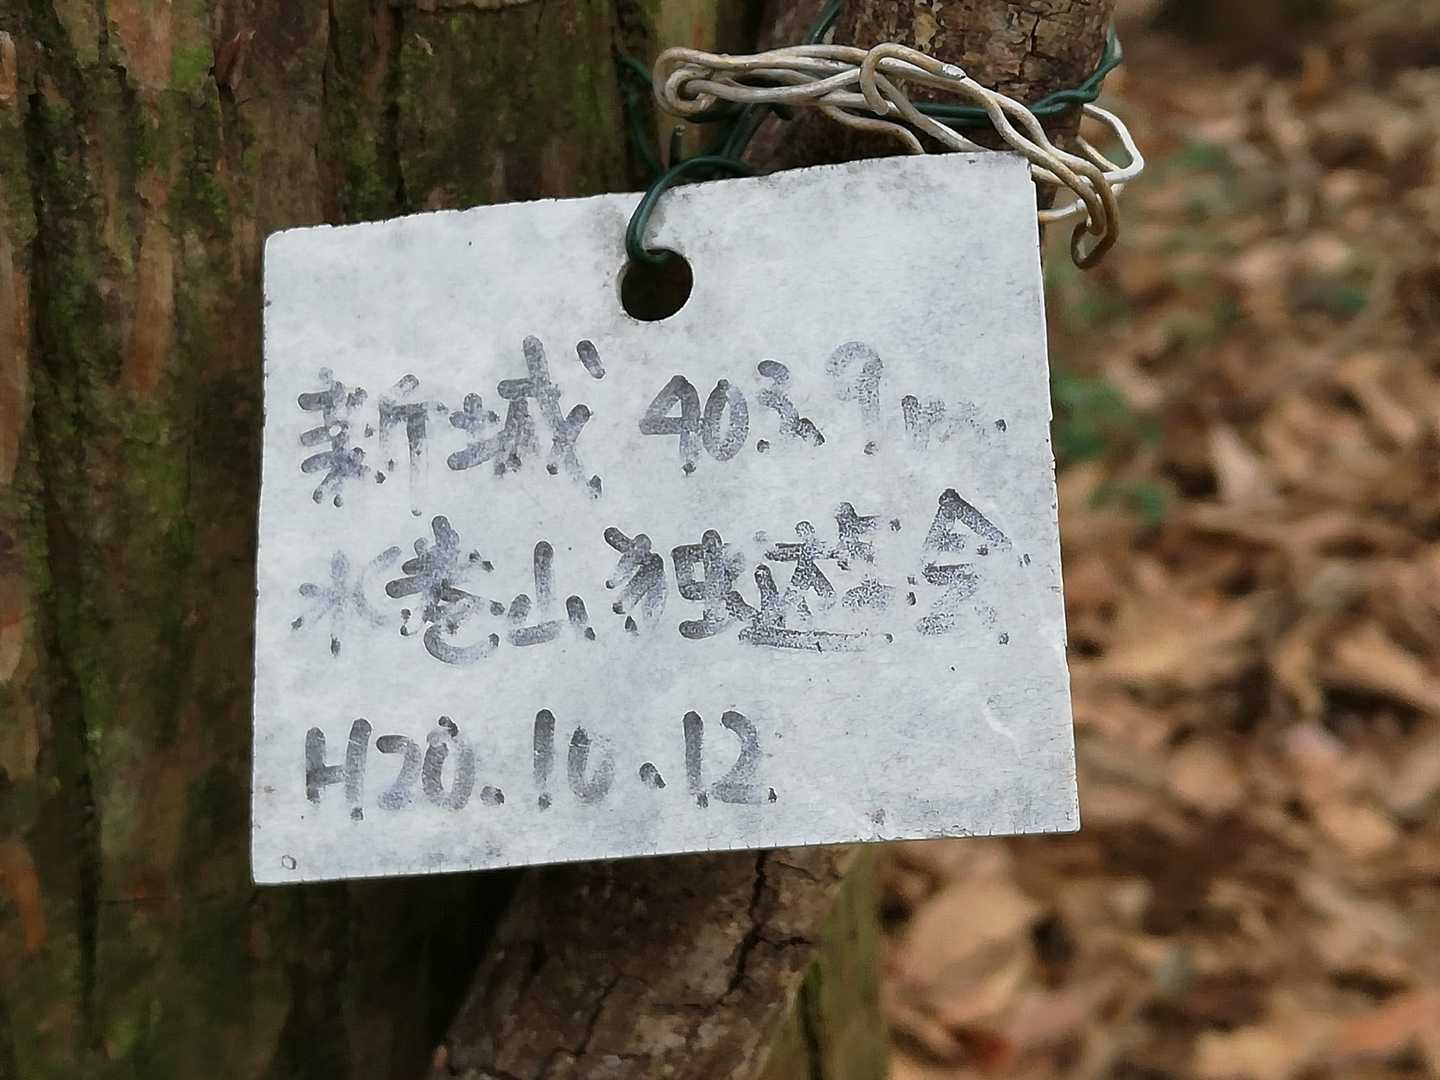 新城 403.9m
水巻山独遊会
H20.10.12